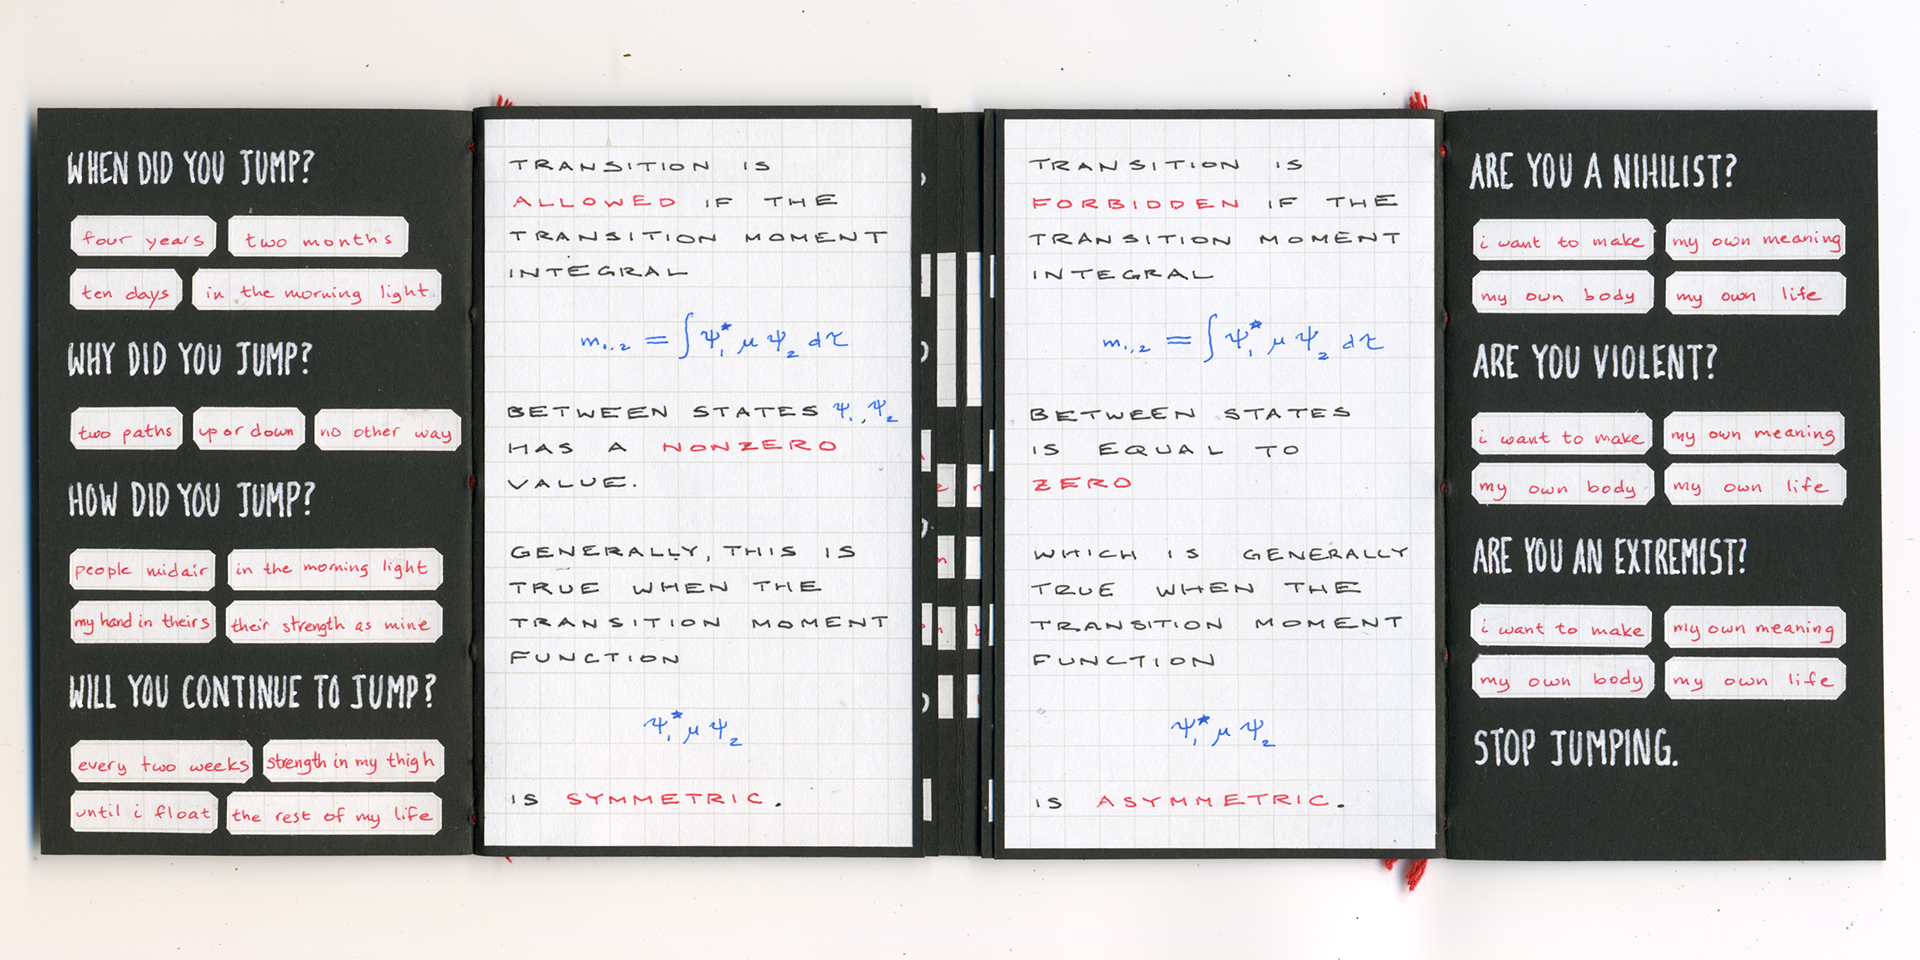 WHEN DID YOU JUMP?
four years two months
ten days in the morning light
WHY DID YOU JUMP?
two paths up or down no other way
HOW DID YOU JUMP?
people midair in the morning light
my hand in theirs their strength as mine
WILL YOU CONTINUE TO JUMP?
every two weeks strength in my thigh
until i float the rest of my life
TRANSITION IS
ALLOWED IF THE
TRANSITION MOMENT
INTEGRAL
m₁,₂ = ∫ψ₁* μ ψ₂ dτ
BETWEEN STATES ψ₁, ψ₂
HAS A NONZERO
VALUE.
GENERALLY, THIS IS
TRUE WHEN THE
TRANSITION MOMENT
FUNCTION
ψ₁* μ ψ₂
IS SYMMETRIC.
TRANSITION IS
FORBIDDEN IF THE
TRANSITION MOMENT
INTEGRAL
m₁,₂ = ∫ψ₁* μ ψ₂ dτ
BETWEEN STATES
IS EQUAL TO
ZERO
WHICH IS GENERALLY
TRUE WHEN THE
TRANSITION MOMENT
FUNCTION
ψ₁* μ ψ₂
IS ASYMMETRIC.
ARE YOU A NIHILIST?
i want to make my own meaning
my own body my own life
ARE YOU VIOLENT?
i want to make my own meaning
my own body my own life
ARE YOU AN EXTREMIST?
i want to make my own meaning
my own body my own life
STOP JUMPING.